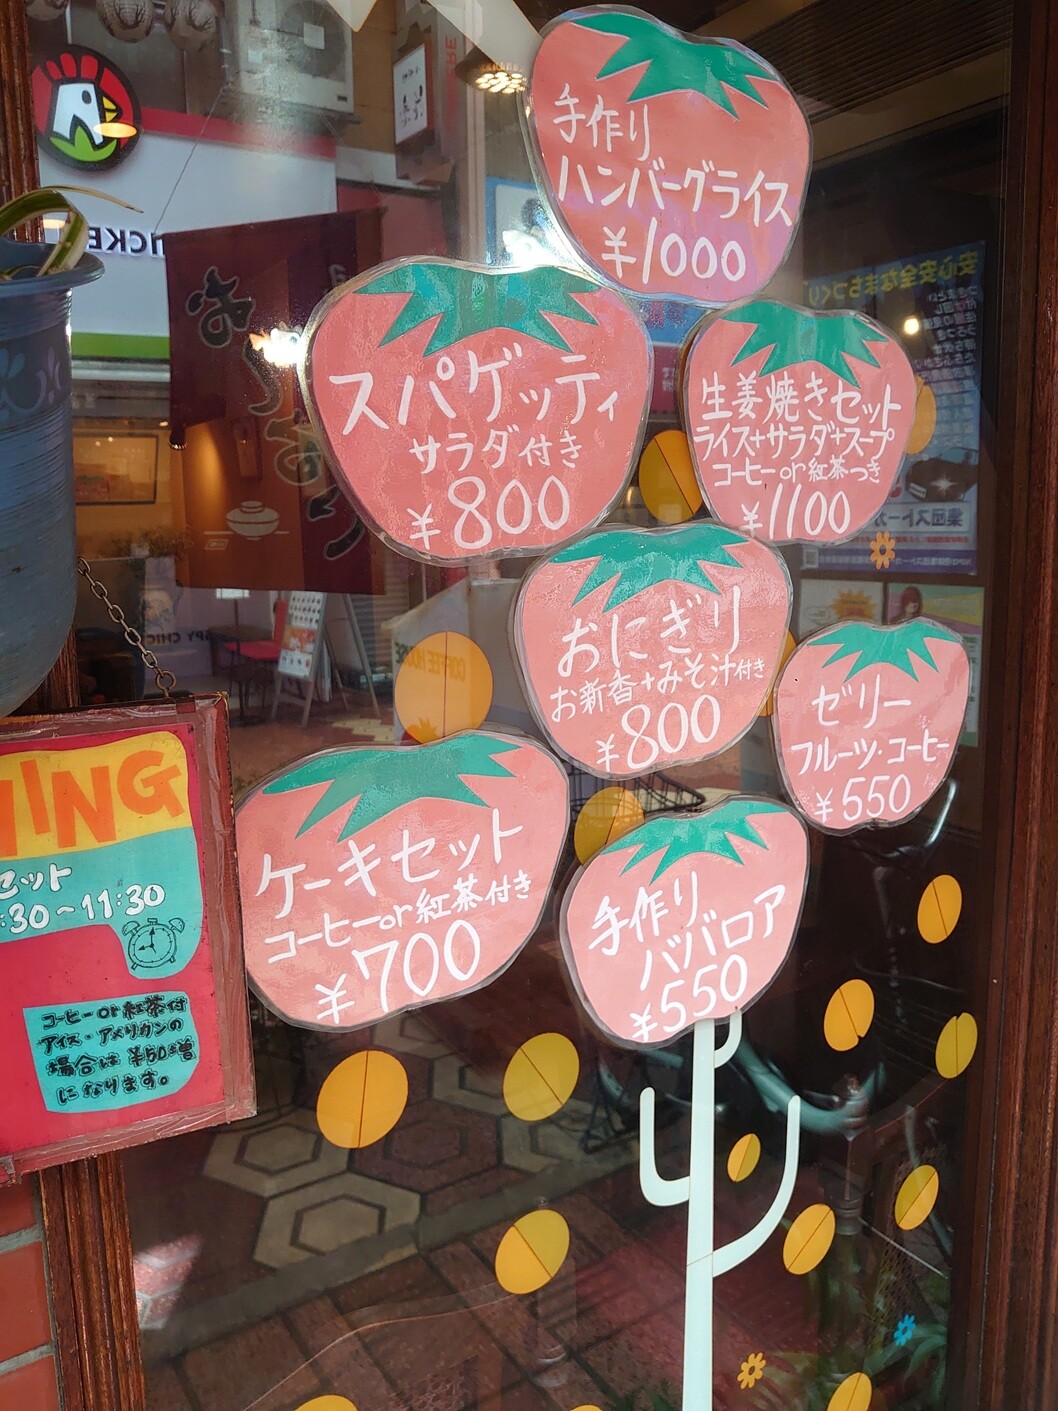 手作り
ハンバーグライス
¥1000
スパゲッティ
サラダ付き
¥800
生姜焼きセット
ライス+サラダ+スープ
コーヒーor紅茶つき
¥1100
おにぎり
お新香+みそ汁付き
¥800
ゼリー
フルーツ・コーヒー
¥550
ケーキセット
コーヒーor紅茶付き
¥700
手作り
ババロア
¥550
NING
セット
:30～11:30
コーヒーor紅茶付
アイス・アメリカンの
場合は¥50増
になります。
安心安全なまちづくり
COFFEE HOUSE